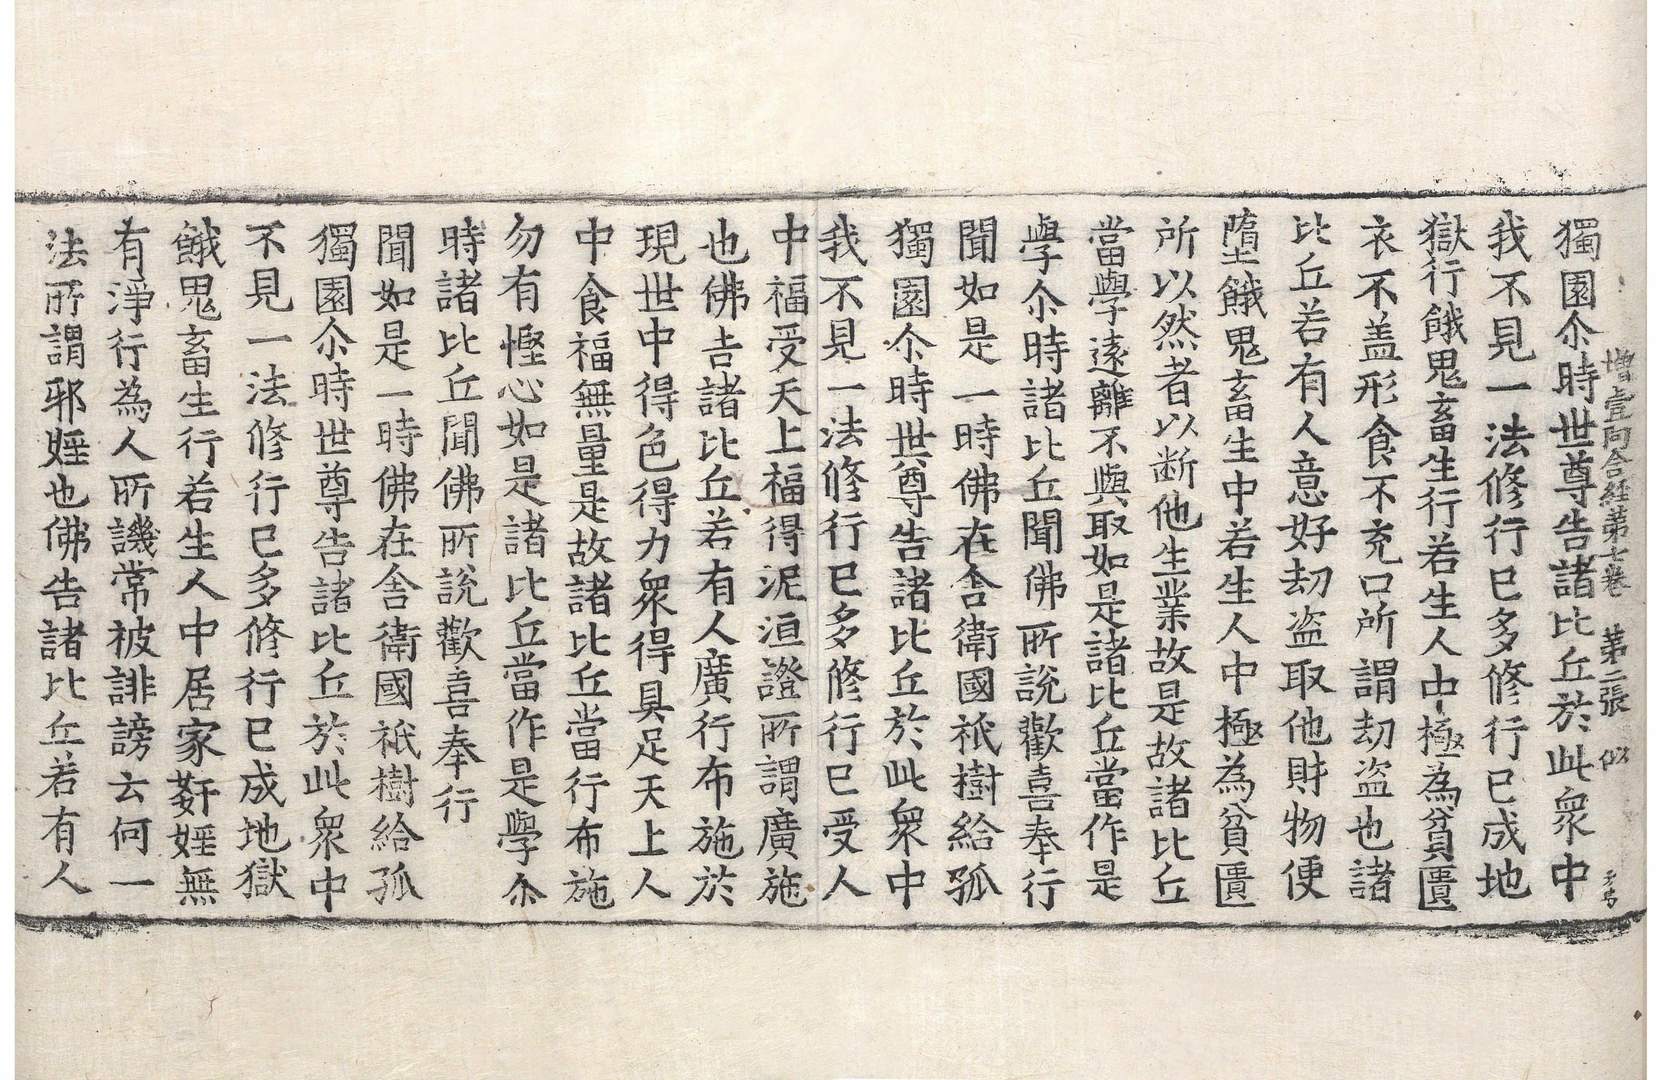 增壹阿含經第七卷　第二張　似
獨園尒時世尊告諸比丘於此衆中
我不見一法修行已多修行已成地
獄行餓鬼畜生行若生人中極為貧匱
衣不盖形食不充口所謂劫盜也諸
比丘若有人意好劫盜取他財物便
墮餓鬼畜生中若生人中極為貧匱
所以然者以断他生業故是故諸比丘
當學遠離不與取如是諸比丘當作是
學尒時諸比丘聞佛所說歡喜奉行
聞如是一時佛在舍衛國祇樹給孤
獨園尒時世尊告諸比丘於此衆中
我不見一法修行已多修行已受人
中福受天上福得泥洹證所謂廣施
也佛告諸比丘若有人廣行布施於
現世中得色得力衆得具足天上人
中食福無量是故諸比丘當行布施
勿有慳心如是諸比丘當作是學尒
時諸比丘聞佛所說歡喜奉行
聞如是一時佛在舍衛國祇樹給孤
獨園尒時世尊告諸比丘於此衆中
不見一法修行已多修行已成地獄
餓鬼畜生行若生人中居家姧婬無
有淨行為人所譏常被誹謗云何一
法所謂邪婬也佛告諸比丘若有人